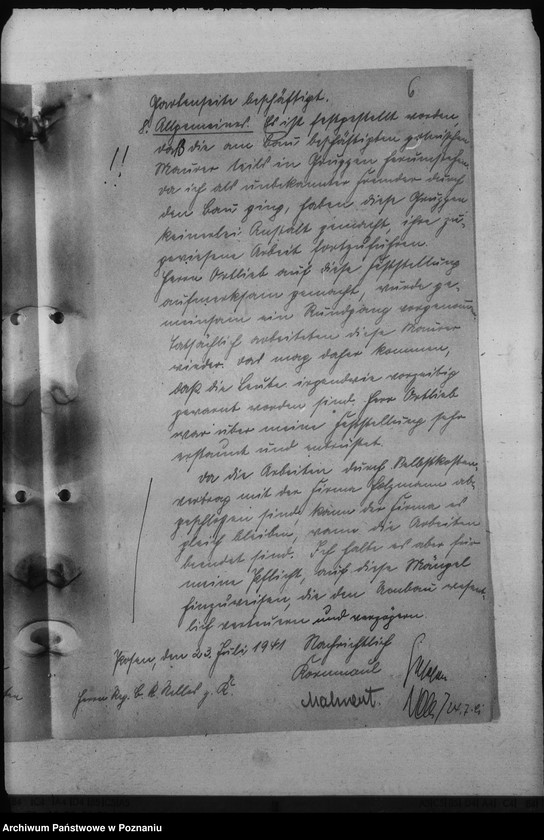 6
Gartenseite beschäftigt.
8. Allgemeines. Es ist festgestellt worden,
daß die am Bau beschäftigten polnischen
!! Maurer teils in Gruppen herumstehen,
da ich als unbekannter Fremder durch
den Bau ging, haben diese Gruppen
keinerlei Anstalt gemacht, ihre zu-
gewiesene Arbeit fortzuführen.
Herrn Ortlieb auf diese Feststellung
aufmerksam gemacht, wurde ge-
meinsam ein Rundgang vorgenom.
Tatsächlich arbeiteten diese Maurer
wieder. Das mag daher kommen,
daß die Leute irgendwie vorzeitig
gewarnt worden sind. Herr Ortlieb
war über meine Feststellung sehr
erstaunt und entrüstet.
Da die Arbeiten durch Selbstkosten-
vertrag mit der Firma Holzmann ab-
geschlossen sind, kann der Firma es
gleich bleiben, wann die Arbeiten
beendet sind. Ich halte es aber für
meine Pflicht, auf diese Mängel
hinzuweisen, die den Umbau wesent-
lich verteuern und verzögern.
Posen, den 23. Juli 1941 Nachrichtlich
Kornmaul
Herrn Reg. z. K.
24.7.
Archiwum Państwowe w Poznaniu